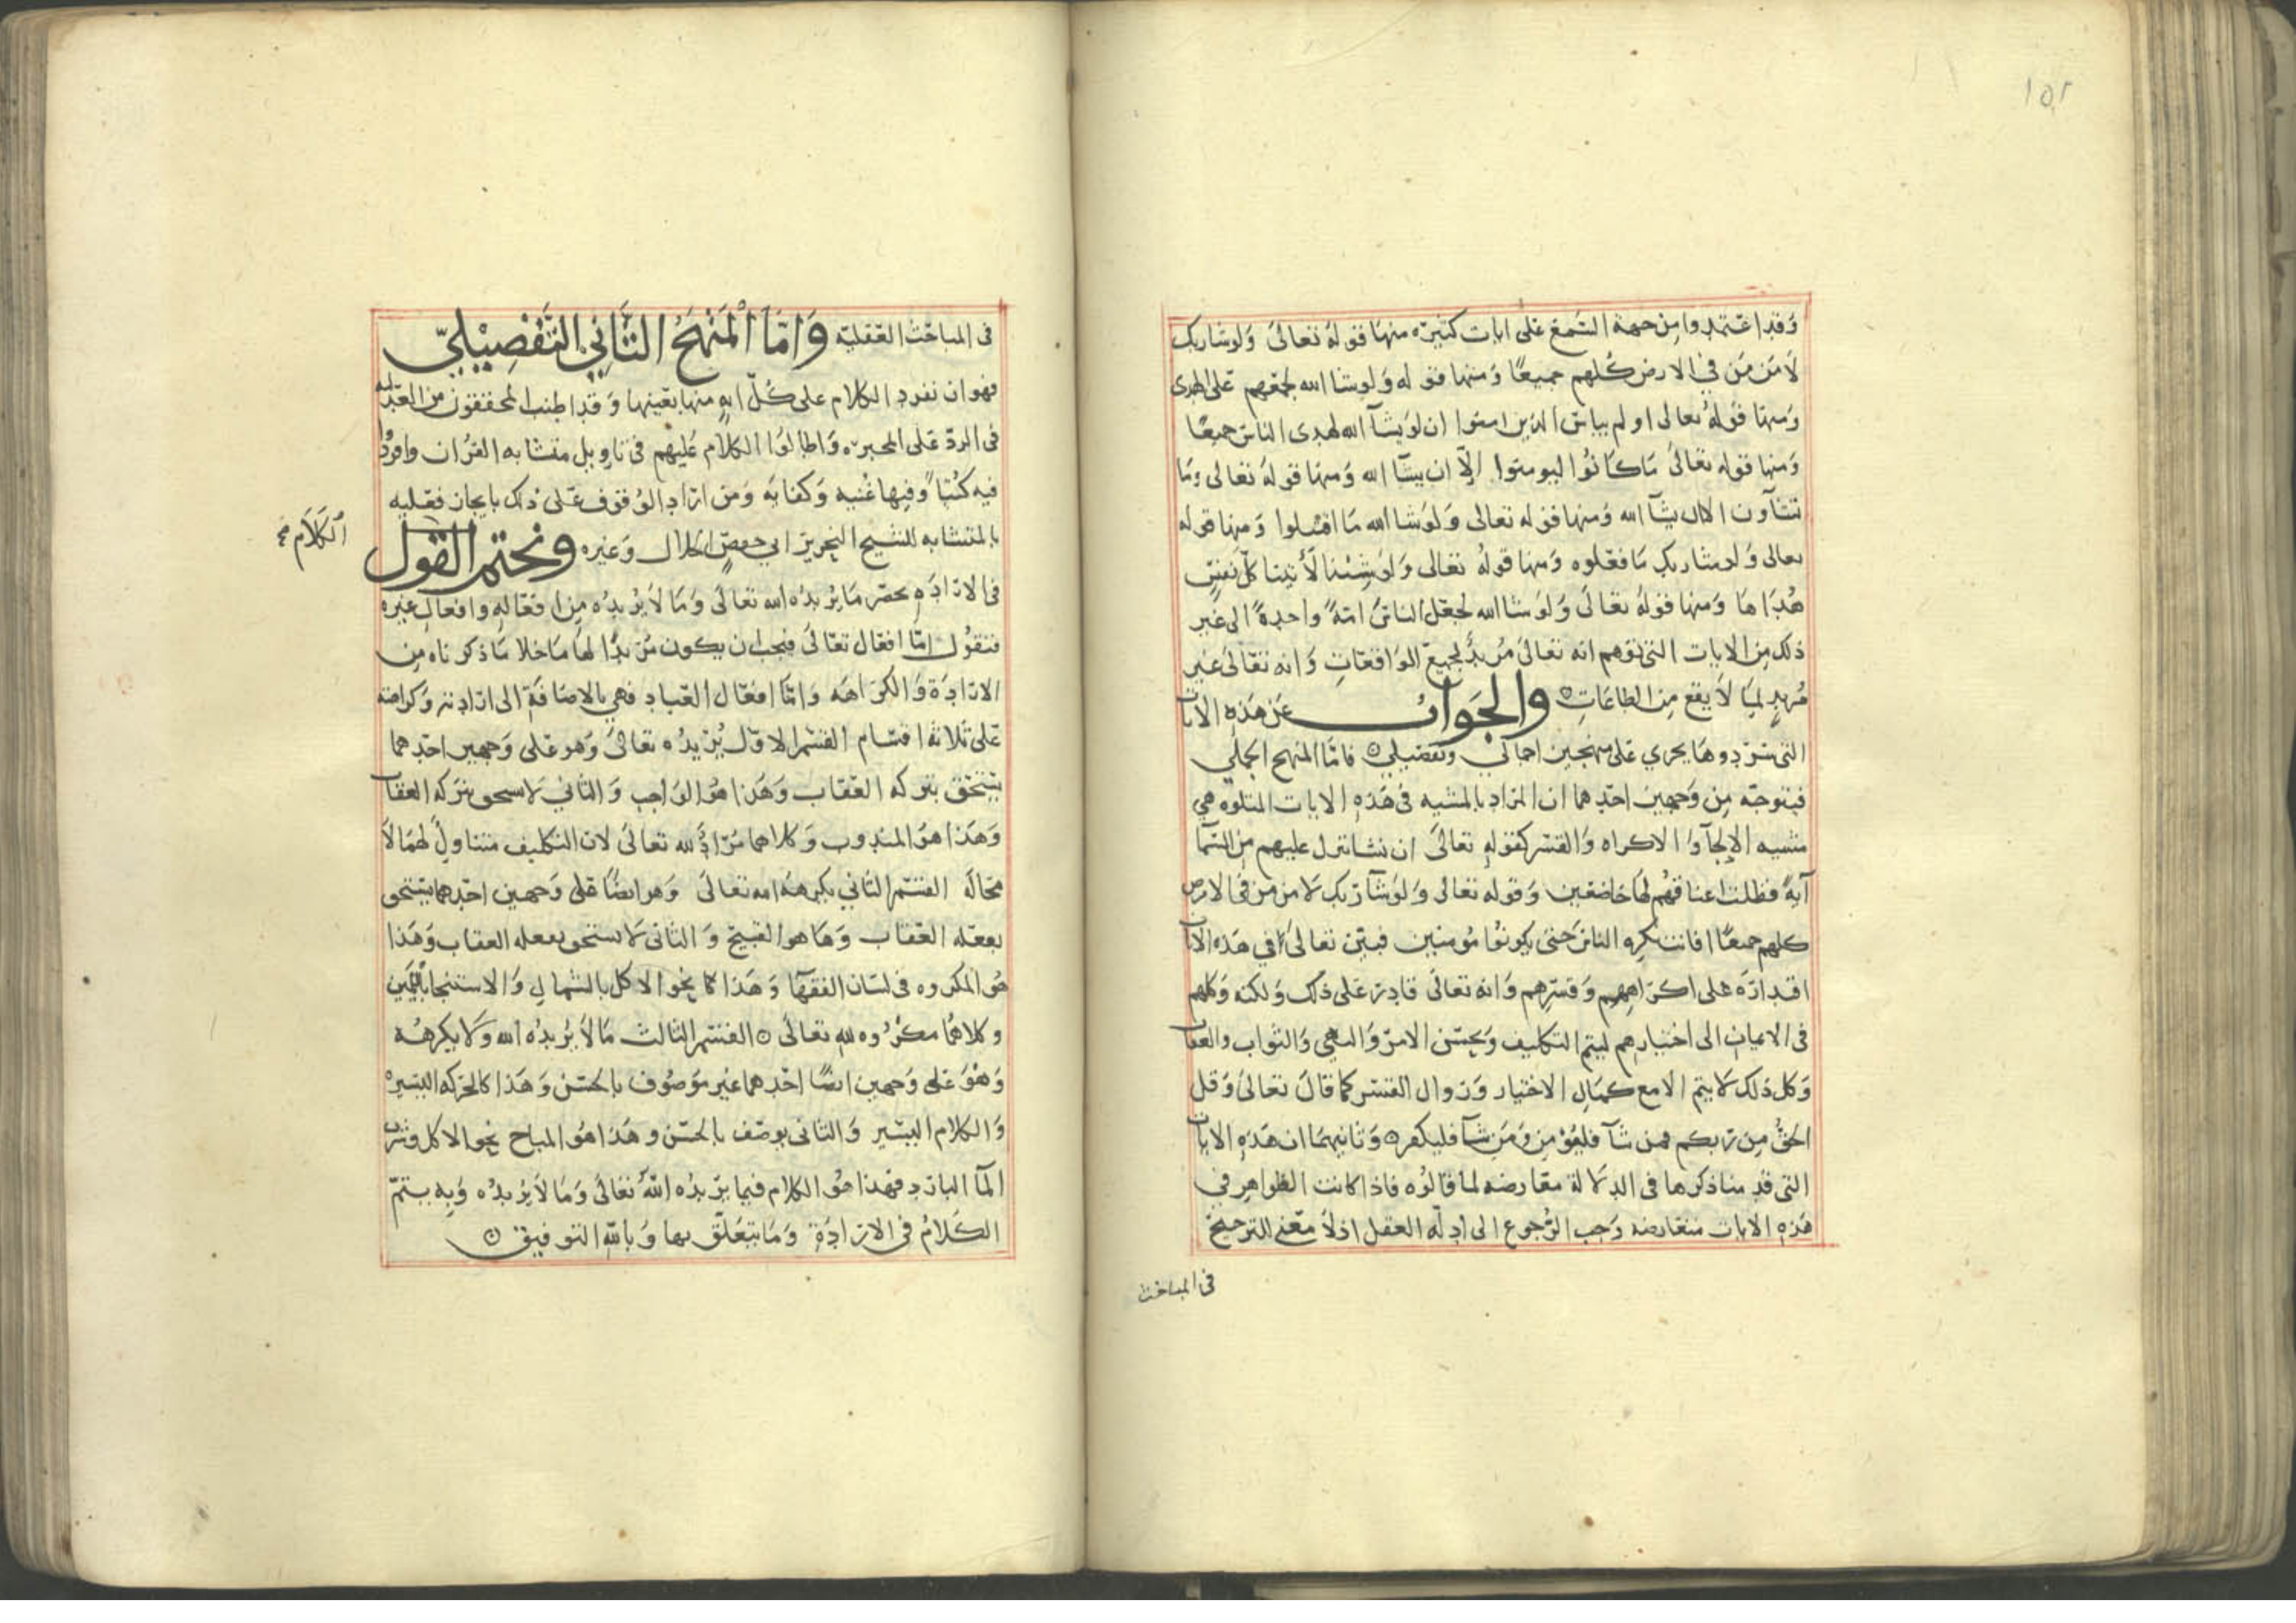 ١٥٢
وَقد اعتمدوا من جهة السَّمع على ايات كثيرة منها قوله تعالى وَلوشا ربك
لآمَنَ مَن في الارض كُلهم جميعًا وَمنها قوله وَلو شا الله لجمعهم على الهدى
وَمنها قوله تعالى اولم يياس الذين امنوا ان لو يشآ الله لهدى الناس جميعًا
وَمنها قوله تعالى مَا كانوا ليومنوا إلاّ ان يشآ الله وَمنها قوله تعالى وما
تشآون الا ان يشآ الله وَمنها قوله تعالى وَلو شا الله مَا اقتتلوا وَمنها قوله
تعالى وَلو شا ربك مَا فعَلوه وَمنها قوله تعالى وَلوشِئنا لأتينا كلّ نفسٍ
هُدَاهَا وَمنها قوله تعالى وَلوشا الله لجعَل الناسَ امةً واحدةً الى غير
ذلك من الايات التى توهم انه تعالى مُريدٌ لجميع الوَاقعَاتِ وَانه تعَالى غير
مُريدٍ لمَا لاَ يقع مِن الطاعَاتِ ۞ والجَوابُ عَن هَذه الايات
التى سَرَدوهَا يجري عَلى منهجين اجمالي وتفصيلي ۞ فامَّا المنهج الجملي
فيتوجّه مِن وَجهين احَدهما ان المرَاد بالمشيه فى هَذهِ الايات المتلوه هي
مشيه الإلجآ وَالاكراه وَالقسر كقوله تعالى ان نشا ننزل عليهم مِن السّما
آيةً فظلت اعناقهُم لهَا خاضعين وَقوله تعالى وَلوشآ رَبك لامن من فى الارض
كلهم جميعًا افانت تكره الناسَ حتى يكونُوا مُومنين فبيّن تعالى في هَذه الايات
اقتدارَه على اكرَاههم وَقسرِهم وَانه تعالى قادر عَلى ذلك وَلكنه وَكلهم
فى الايمان الى اختيارهم ليتم التكليف وَيحسُن الامرُ وَالنهي وَالثواب والعقاب
وَكل ذلك لا يتم الا مع كمَالِ الاختيار وَزوال القسر كما قالَ تعالى وَقل
الحقُّ مِن رَبكم فمن شآ فليُؤمِن وَمَن شآ فليكفر ۞ وَثانيهمَا ان هَذهِ الايات
التى قد مناذكرها فى الدلالة معَارضه لما قالوه فاذا كانت الظواهِر في
هَذهِ الايات متعَارضه وَجب الرُّجوع الى ادِلّه العقل اذ لاَ مَعنى للترجيح
فى المباحث
فى المباحَث العَقليّه وَامَّا المَنْهَجُ الثَّانِي التَّفْصِيْليّ
فهو ان نفرد الكلام على كُلّ ايهٍ منها بعَينها وَقد اطنب المُحققون من العَدليه
فى الردّ عَلى المجبره وَاطالوُا الكلام عَليهم فى تاويل متشابه القرُان وافردُوا
فيه كتُبًا وَفيها غُنيه وَكفايه وَمَن ارَاد الوُقوف عَلى ذلك بايجاز فعَليه
بالمتشابه للشيح النحرير ابي حفصٍ الخلال وَغيره ونختم القول
الكَلاَم نخ
فى الارَادَهِ بحصر مَا يُريدُه الله تعالى وَمَا لاَ يُريدُه مِن افعَالهِ وافعال غيرِه
فنقوُل امّا افعَال تعَالى فيجب ان يكون مُرَيدًا لهَا مَا خلا مَا ذكرناه مِن
الارَادَة وَالكرَاهَه وَامّا افعَال العبَاد فهي بالاضَافَة الى ارَادتهِ وَكراهته
عَلى ثلاثة اقسَام القسم الاوّل يُرَيدُه تعَالى وَهو عَلى وَجهين احَدهما
يتحَقق بتركه العقَاب وَهَذا هوَ الوَاجب وَالثاني لا يستحق بترَكه العقاب
وَهَذا هوَ المندوب وَكلاهما مُرَادٌ لله تعالى لان التكليف متناولٌ لهمَا لا
محَالَه القسَم الثاني يكرهه الله تعالى وَهوَ ايضًا عَلى وَجهين احَدهما يستحق
بفعَله العقاب وَهَاهو القبيح وَالثانى لا يستحق بفعله العقاب وَهَذا
هوَ المكروه فى لسَان الفقهَآ وَهَذا كا نحو الاكل بالشمالِ وَالاستنجا باليَمين
وكلاهمُا مكرُوه للهِ تعالى ۞ القسَم الثالث مَا لاَ يُريدُه الله وَلا يكرههُ
وَهُوَ عَلى وَجهين ايضًا احَدهما غير مَوصُوف بالحسَن وَهَذا كالحرَكه اليسَيره
وَالكلام اليسَير وَالثانى يوصَف بالحسَن وهَذا هوَ المباح نحو الاكل وشرب
المآ البارَد فهذا هوَ الكلام فيما يرَيدُه اللّه تعالى وَمَا لاَ يُريدُه وَبِهِ يتمّ
الكَلامُ فى الارَادَةِ وَمَا يتَعَلّق بها وَباللهِ التوفيق ۞